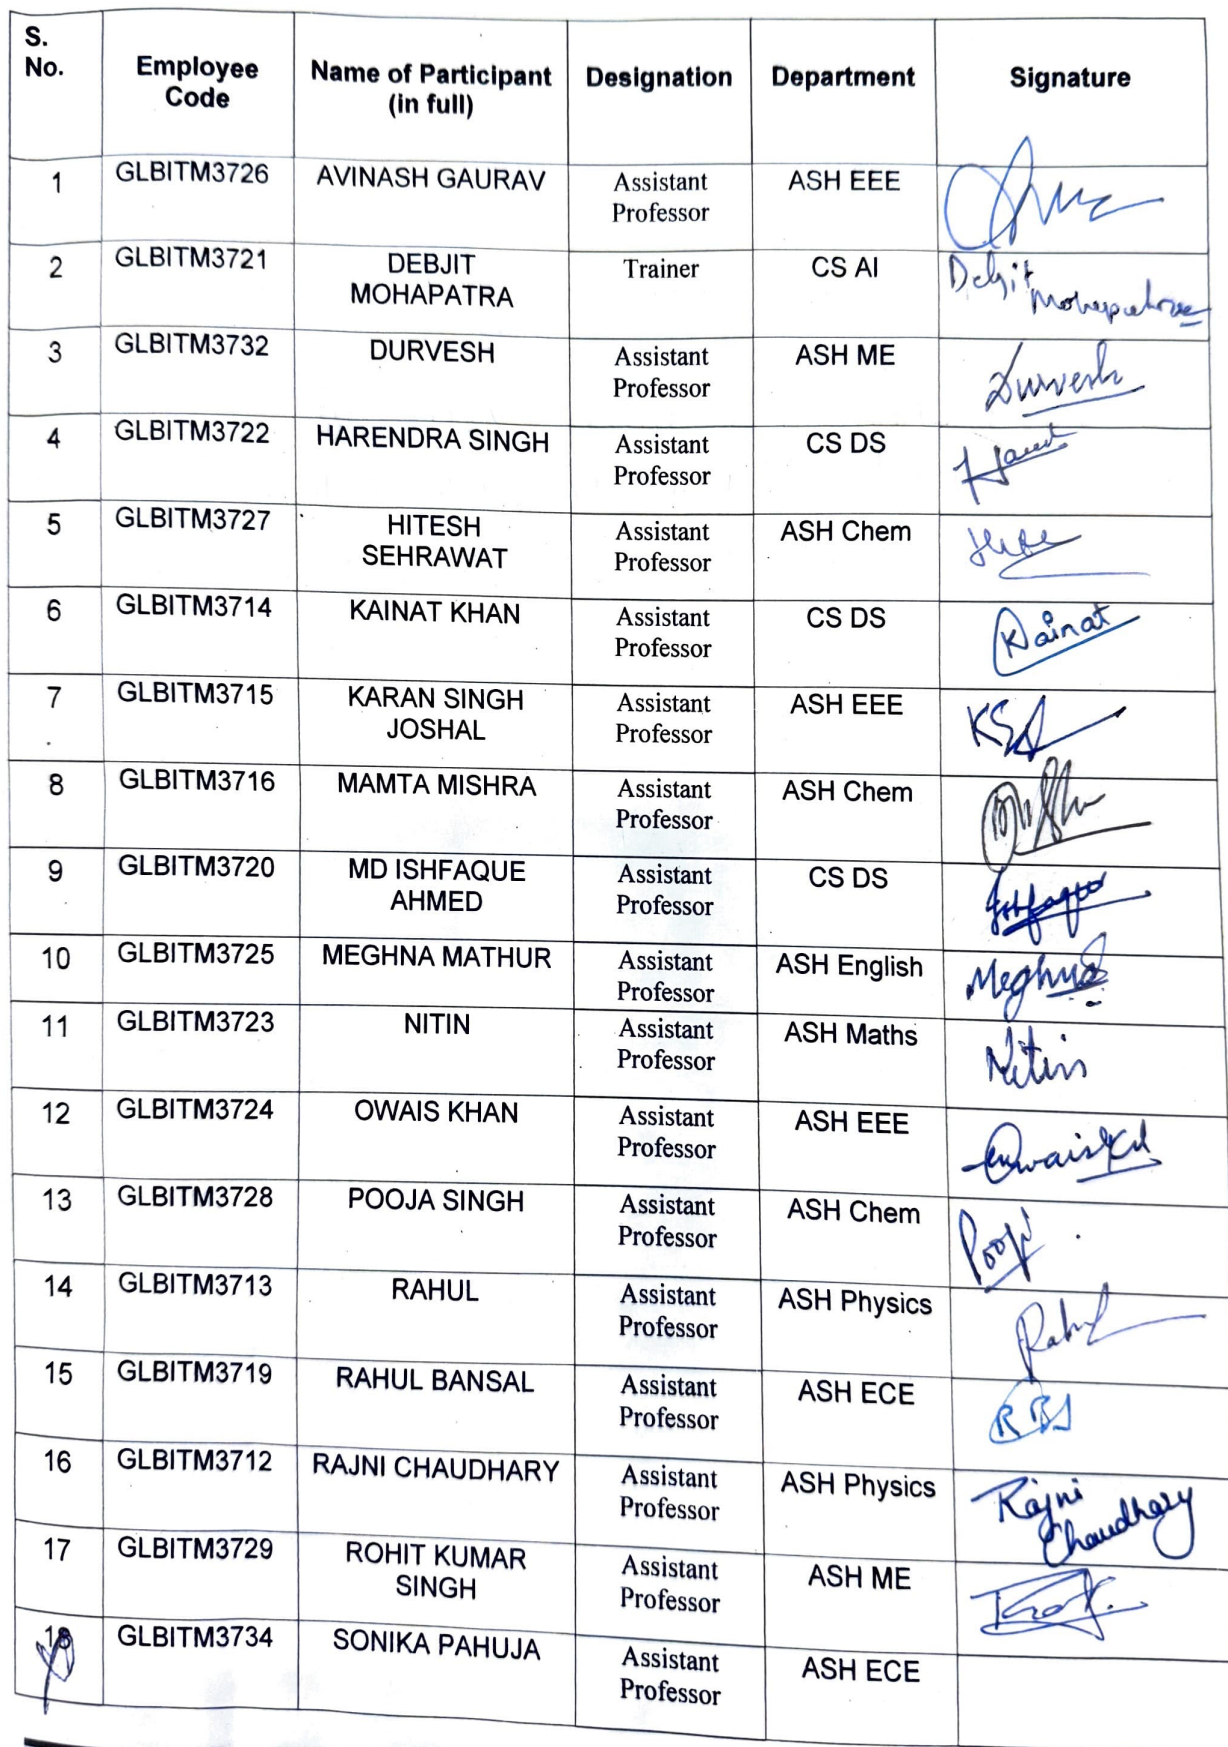 S. No. Employee Code Name of Participant (in full) Designation Department Signature
1 GLBITM3726 AVINASH GAURAV Assistant Professor ASH EEE
2 GLBITM3721 DEBJIT MOHAPATRA Trainer CS AI Debjit Mohapatra
3 GLBITM3732 DURVESH Assistant Professor ASH ME Durvesh
4 GLBITM3722 HARENDRA SINGH Assistant Professor CS DS
5 GLBITM3727 HITESH SEHRAWAT Assistant Professor ASH Chem
6 GLBITM3714 KAINAT KHAN Assistant Professor CS DS Kainat
7 GLBITM3715 KARAN SINGH JOSHAL Assistant Professor ASH EEE
8 GLBITM3716 MAMTA MISHRA Assistant Professor ASH Chem
9 GLBITM3720 MD ISHFAQUE AHMED Assistant Professor CS DS
10 GLBITM3725 MEGHNA MATHUR Assistant Professor ASH English Meghna
11 GLBITM3723 NITIN Assistant Professor ASH Maths Nitin
12 GLBITM3724 OWAIS KHAN Assistant Professor ASH EEE
13 GLBITM3728 POOJA SINGH Assistant Professor ASH Chem
14 GLBITM3713 RAHUL Assistant Professor ASH Physics Rahul
15 GLBITM3719 RAHUL BANSAL Assistant Professor ASH ECE
16 GLBITM3712 RAJNI CHAUDHARY Assistant Professor ASH Physics Rajni Chaudhary
17 GLBITM3729 ROHIT KUMAR SINGH Assistant Professor ASH ME
18 GLBITM3734 SONIKA PAHUJA Assistant Professor ASH ECE